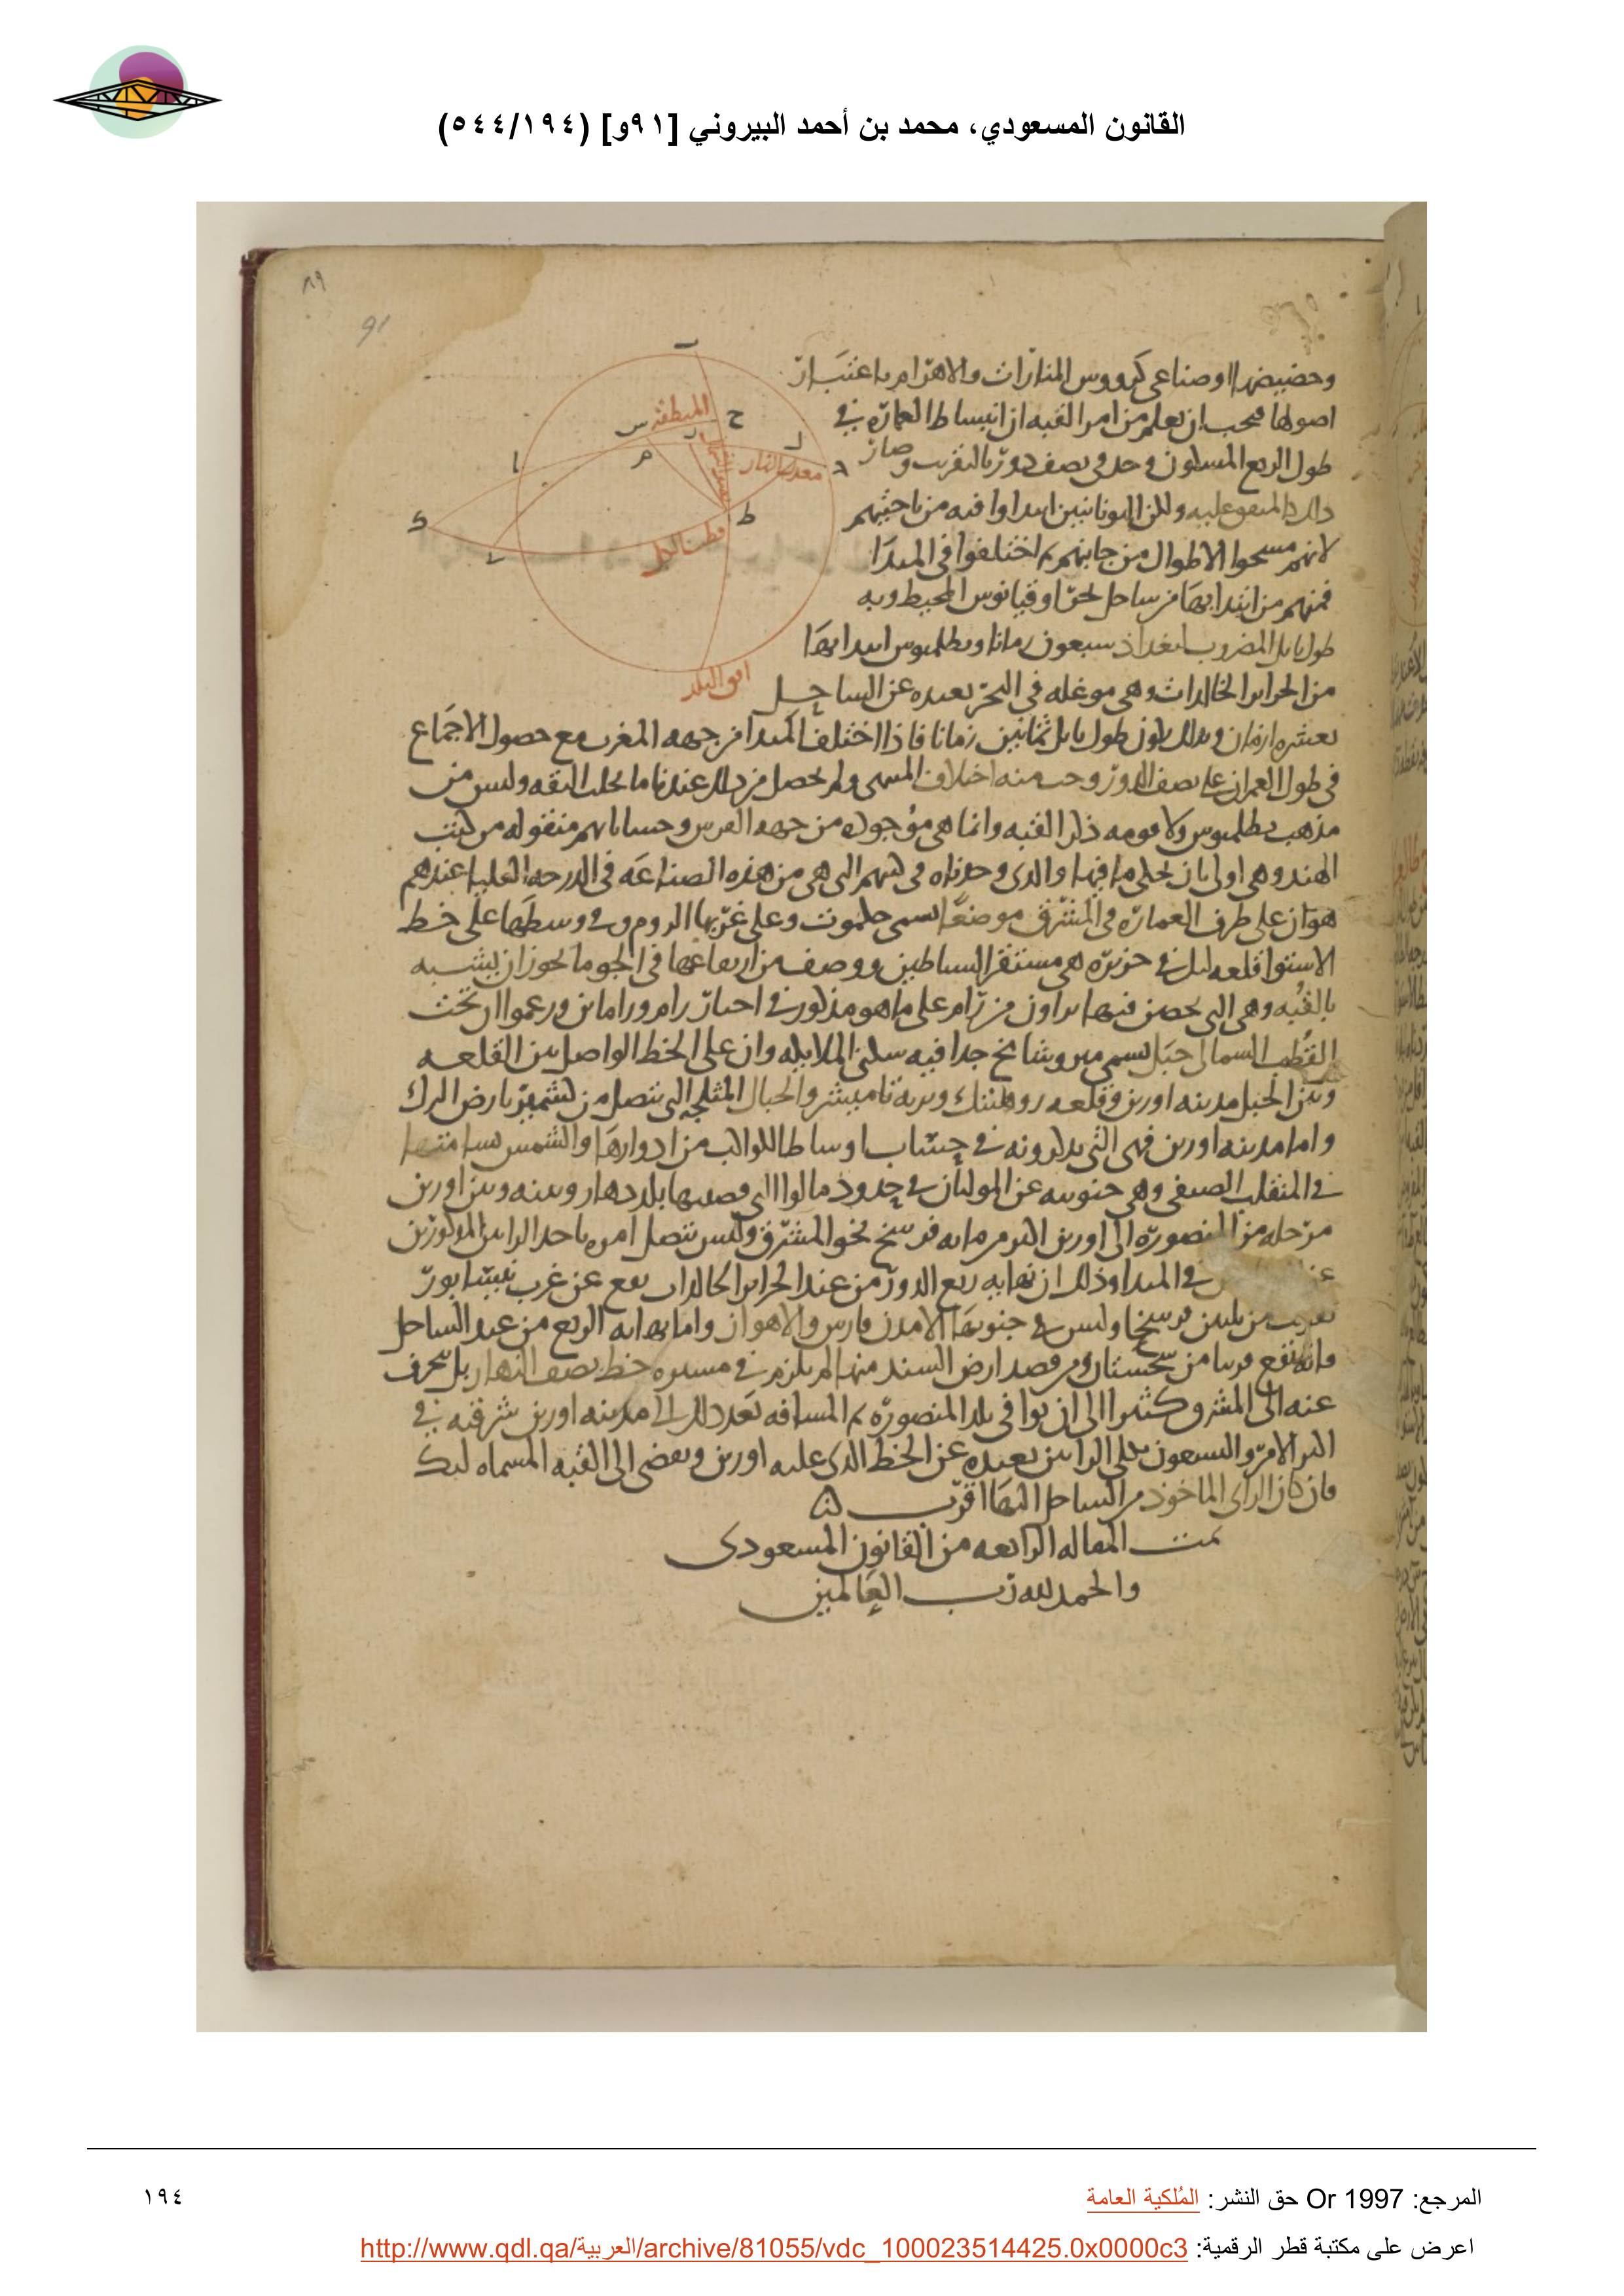 القانون المسعودي، محمد بن أحمد البيروني [٩١و] (٥٤٤/١٩٤)
٨٩
91
وحضيضها او صناعي كرووس المنارات والاهرام باعتبار
اصولها فيجب ان يعلم من امر القبه ان انبساط العماره في
طول الربع المسكون وجد في نصف دور بالتقريب وصار
ذلك كالمتفق عليه ولكن اليونانيين ابتداوا فيه من ناحيتهم
لانهم مسحوا الاطوال من جانبهم ثم اختلفوا في المبدا
فمنهم من ابتدا بها من ساحل بحر اوقيانوس المحيط وبه
طول بابل المضروب ببغداد سبعون زمانا وبطلميوس ابتدا بها
من الجزاير الخالدات وهي موغله في البحر بعيده عن الساحل
بعشره ازمان وبذلك يكون طول بابل ثمانين زمانا فاذا اختلف المبدا من جهه المغرب مع حصول الاجماع
في طول العمران على نصف الدور وجب منه اختلاف المنتهى ولم يحصل من ذلك عندنا ما يجلب الثقه وليس من
مذهب بطلميوس ولا قومه ذكر القبه وانما هي موجوده من جهه الفرس وحساباتهم منقوله من كتب
الهند وهي اولى بان يحكى ما فيها والذي وجدناه في كتبهم التي هي من هذه الصناعه في الدرجه العليا عندهم
هو ان على طرف العماره في المشرق موضعا يسمى جمكوت وعلى غربها الروم وفي وسطها على خط
الاستوا قلعه لنك في جزيره هي مستقر الشياطين ووصف من ارتفاعها في الجو ما يجوز ان يشبه
بالقبه وهي التي تحصن فيها راون من رام على ما هو مذكور في اخبار رام وراماين وزعموا ان تحت
القطب الشمالي جبل يسمى ميرو شامخ جدا فيه سكنى الملايكه وان على الخط الواصل بين القلعه
وبين الجبل مدينه اورين وقلعه روهيتك وبريه تانيشر والجبال المثلجه التي تتصل من كشمير بارض الترك
واما مدينه اورين فهي التي يذكرونه في حساب اوساط الكواكب من ادوارها والشمس تسامتها
في المنقلب الصيفي وهي جنوبيه عن المولتان في حدود مالوا التي قصبتها بلد دهار وبينه وبين اورين
مرحله من المنصوره الى اورين اكثر من مايه فرسخ نحو المشرق وليس يتصل امره باحد الرايين المذكورين
في المبدا وذلك ان نهايه ربع الدور من عند الجزاير الخالدات يقع عن غرب نيسابور
بقريب من ثلثين فرسخا وليس في جنوبها الا مدن فارس والاهواز واما نهايه الربع من عند الساحل
فانه يقع قريبا من سجستان ومن قصد ارض السند منها لم يلزم في مسيره خط نصف النهار بل ينحرف
عنه الى المشرق كثيرا الى ان يوافي بلد المنصوره ثم المسافه بعد ذلك الى مدينه اورين شرقيه في
اكثر الامر والتسعون بكلي الرايين بعيده عن الخط الذي عليه اورين ويفضي الى القبه المسماه لنك
فان كان الراى الماخوذ من الساحل اليها اقرب
تمت المقاله الرابعه من القانون المسعودي
والحمد لله رب العالمين
المنطقه
معدل النهار
نصف النهار
قطب الكل
افق البلد
المرجع: Or 1997 حق النشر: المُلكية العامة
١٩٤
اعرض على مكتبة قطر الرقمية: http://www.qdl.qa/العربية/archive/81055/vdc_100023514425.0x0000c3